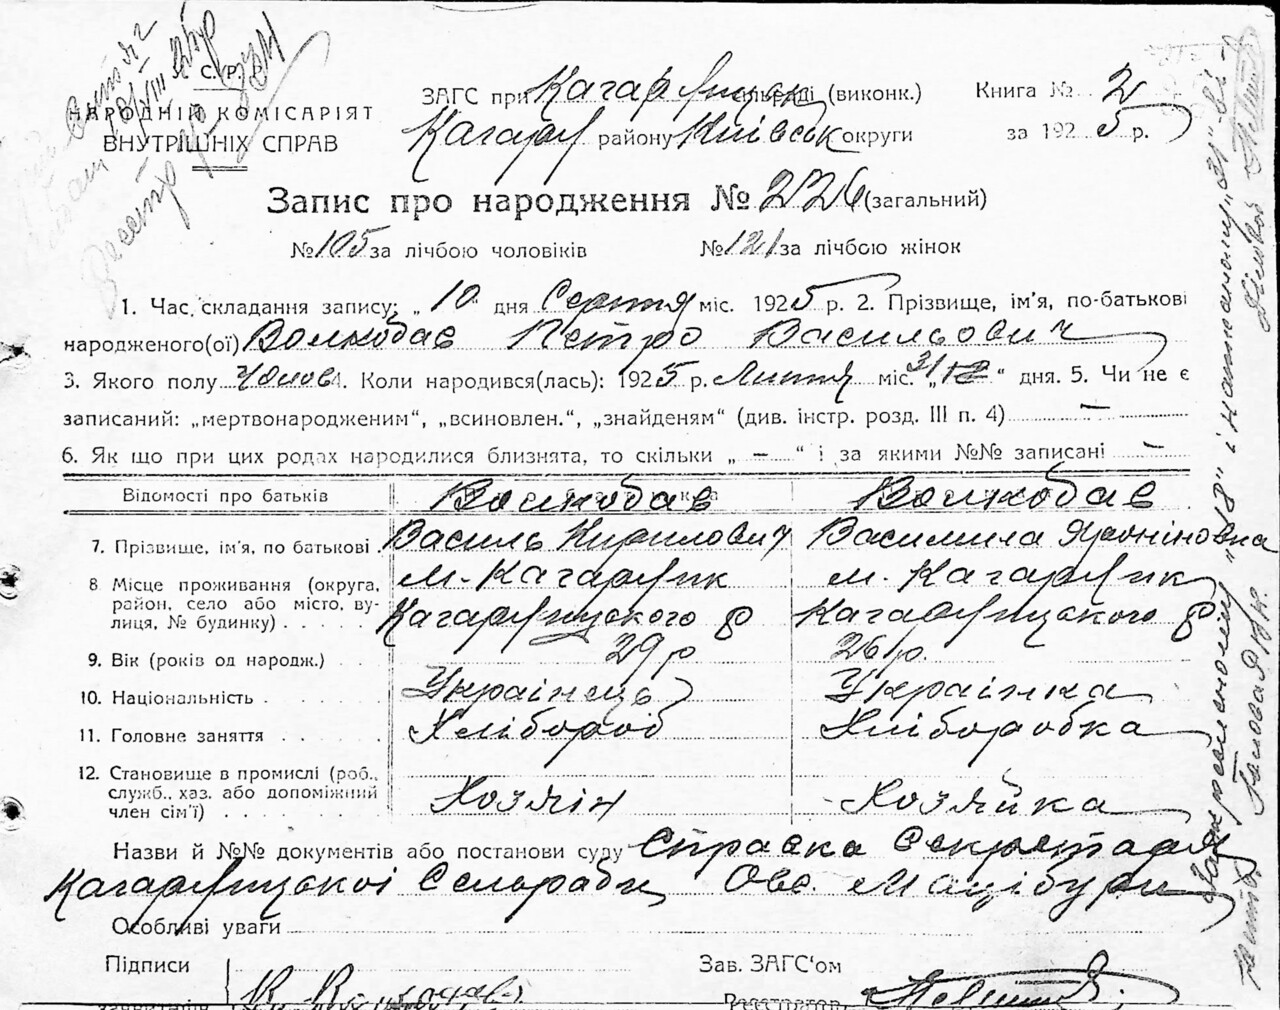 У. С. Р. Р.
НАРОДНІЙ КОМІСАРІЯТ
ВНУТРІШНІХ СПРАВ
ЗАГС при Кагарлицьк (виконк.)
Кагарл району Київськ округи
Книга № 2
за 1925 р.
Запис про народження № 226 (загальний)
№ 105 за лічбою чоловіків № 121 за лічбою жінок
1. Час складання запису: „10“ дня Серпня міс. 1925 р. 2. Прізвище, ім'я, по-батькові
народженого(ої) Волкобав Петро Васильович
3. Якого полу Чолов 4. Коли народився(лась): 1925 р. Липня міс. „31 18“ дня. 5. Чи не є
записаний: „мертвонародженим“, „всиновлен.“, „знайденям“ (див. інстр. розд. III п. 4) —
6. Як що при цих родах народилися близнята, то скільки „ — “ і за якими №№ записані —
Відомості про батьків Волкобав Волкобав
7. Прізвище, ім'я, по батькові Василь Кирилович Василина
8 Місце проживання (округа, м. Кагарлик м. Кагарлик
район, село або місто, вулиця, № будинку) Кагарлицького р Кагарлицького р.
9. Вік (років од народж.) 29 р 26 р.
10. Національність Українець Українка
11. Головне заняття Хлібороб Хліборобка
12. Становище в промислі (роб.,
служб., хаз. або допоміжний
член сім'ї) Хозяін Хозяйка
Назви й №№ документів або постанови суду Справка Секретаря
Кагарлицької Сельради
Особливі уваги
Підписи Зав. ЗАГС'ом
заявителів Реєстратор
"18" і написаному "31" -